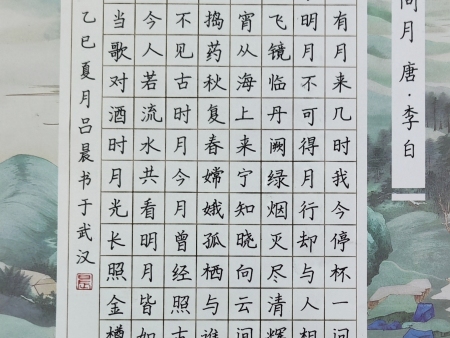 问月 唐·李白
有月来几时我今停杯一问
明月不可得月行却与人相
飞镜临丹阙绿烟灭尽清辉
宵从海上来宁知晓向云间
捣药秋复春嫦娥孤栖与谁
不见古时月今月曾经照古
今人若流水共看明月皆如
当歌对酒时月光长照金樽
乙巳夏月吕晨书于武汉